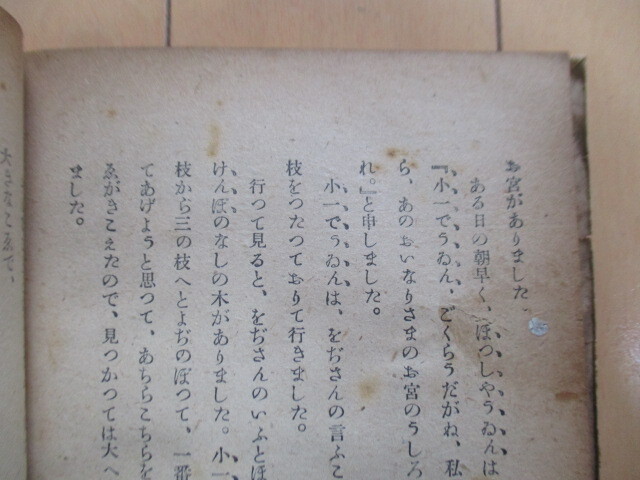 お宮がありました
ある日の朝早く、ぼつしやうゐんは
『小一でうゐん、ごくらうだがね、私
ら、あのおいなりさまのお宮のうしろ
れ。』と申しました。
小一でうゐんは、をぢさんの言ふこ
枝をつたつておりて行きました。
行って見ると、をぢさんのいふとほ
けんぽのなしの木がありました。小一
枝から三の枝へとよぢのぼつて、一番
てあげようと思つて、あちらこちらを
ゑがきこえたので、見つかつては大へ
ました。
大きなこゑで、